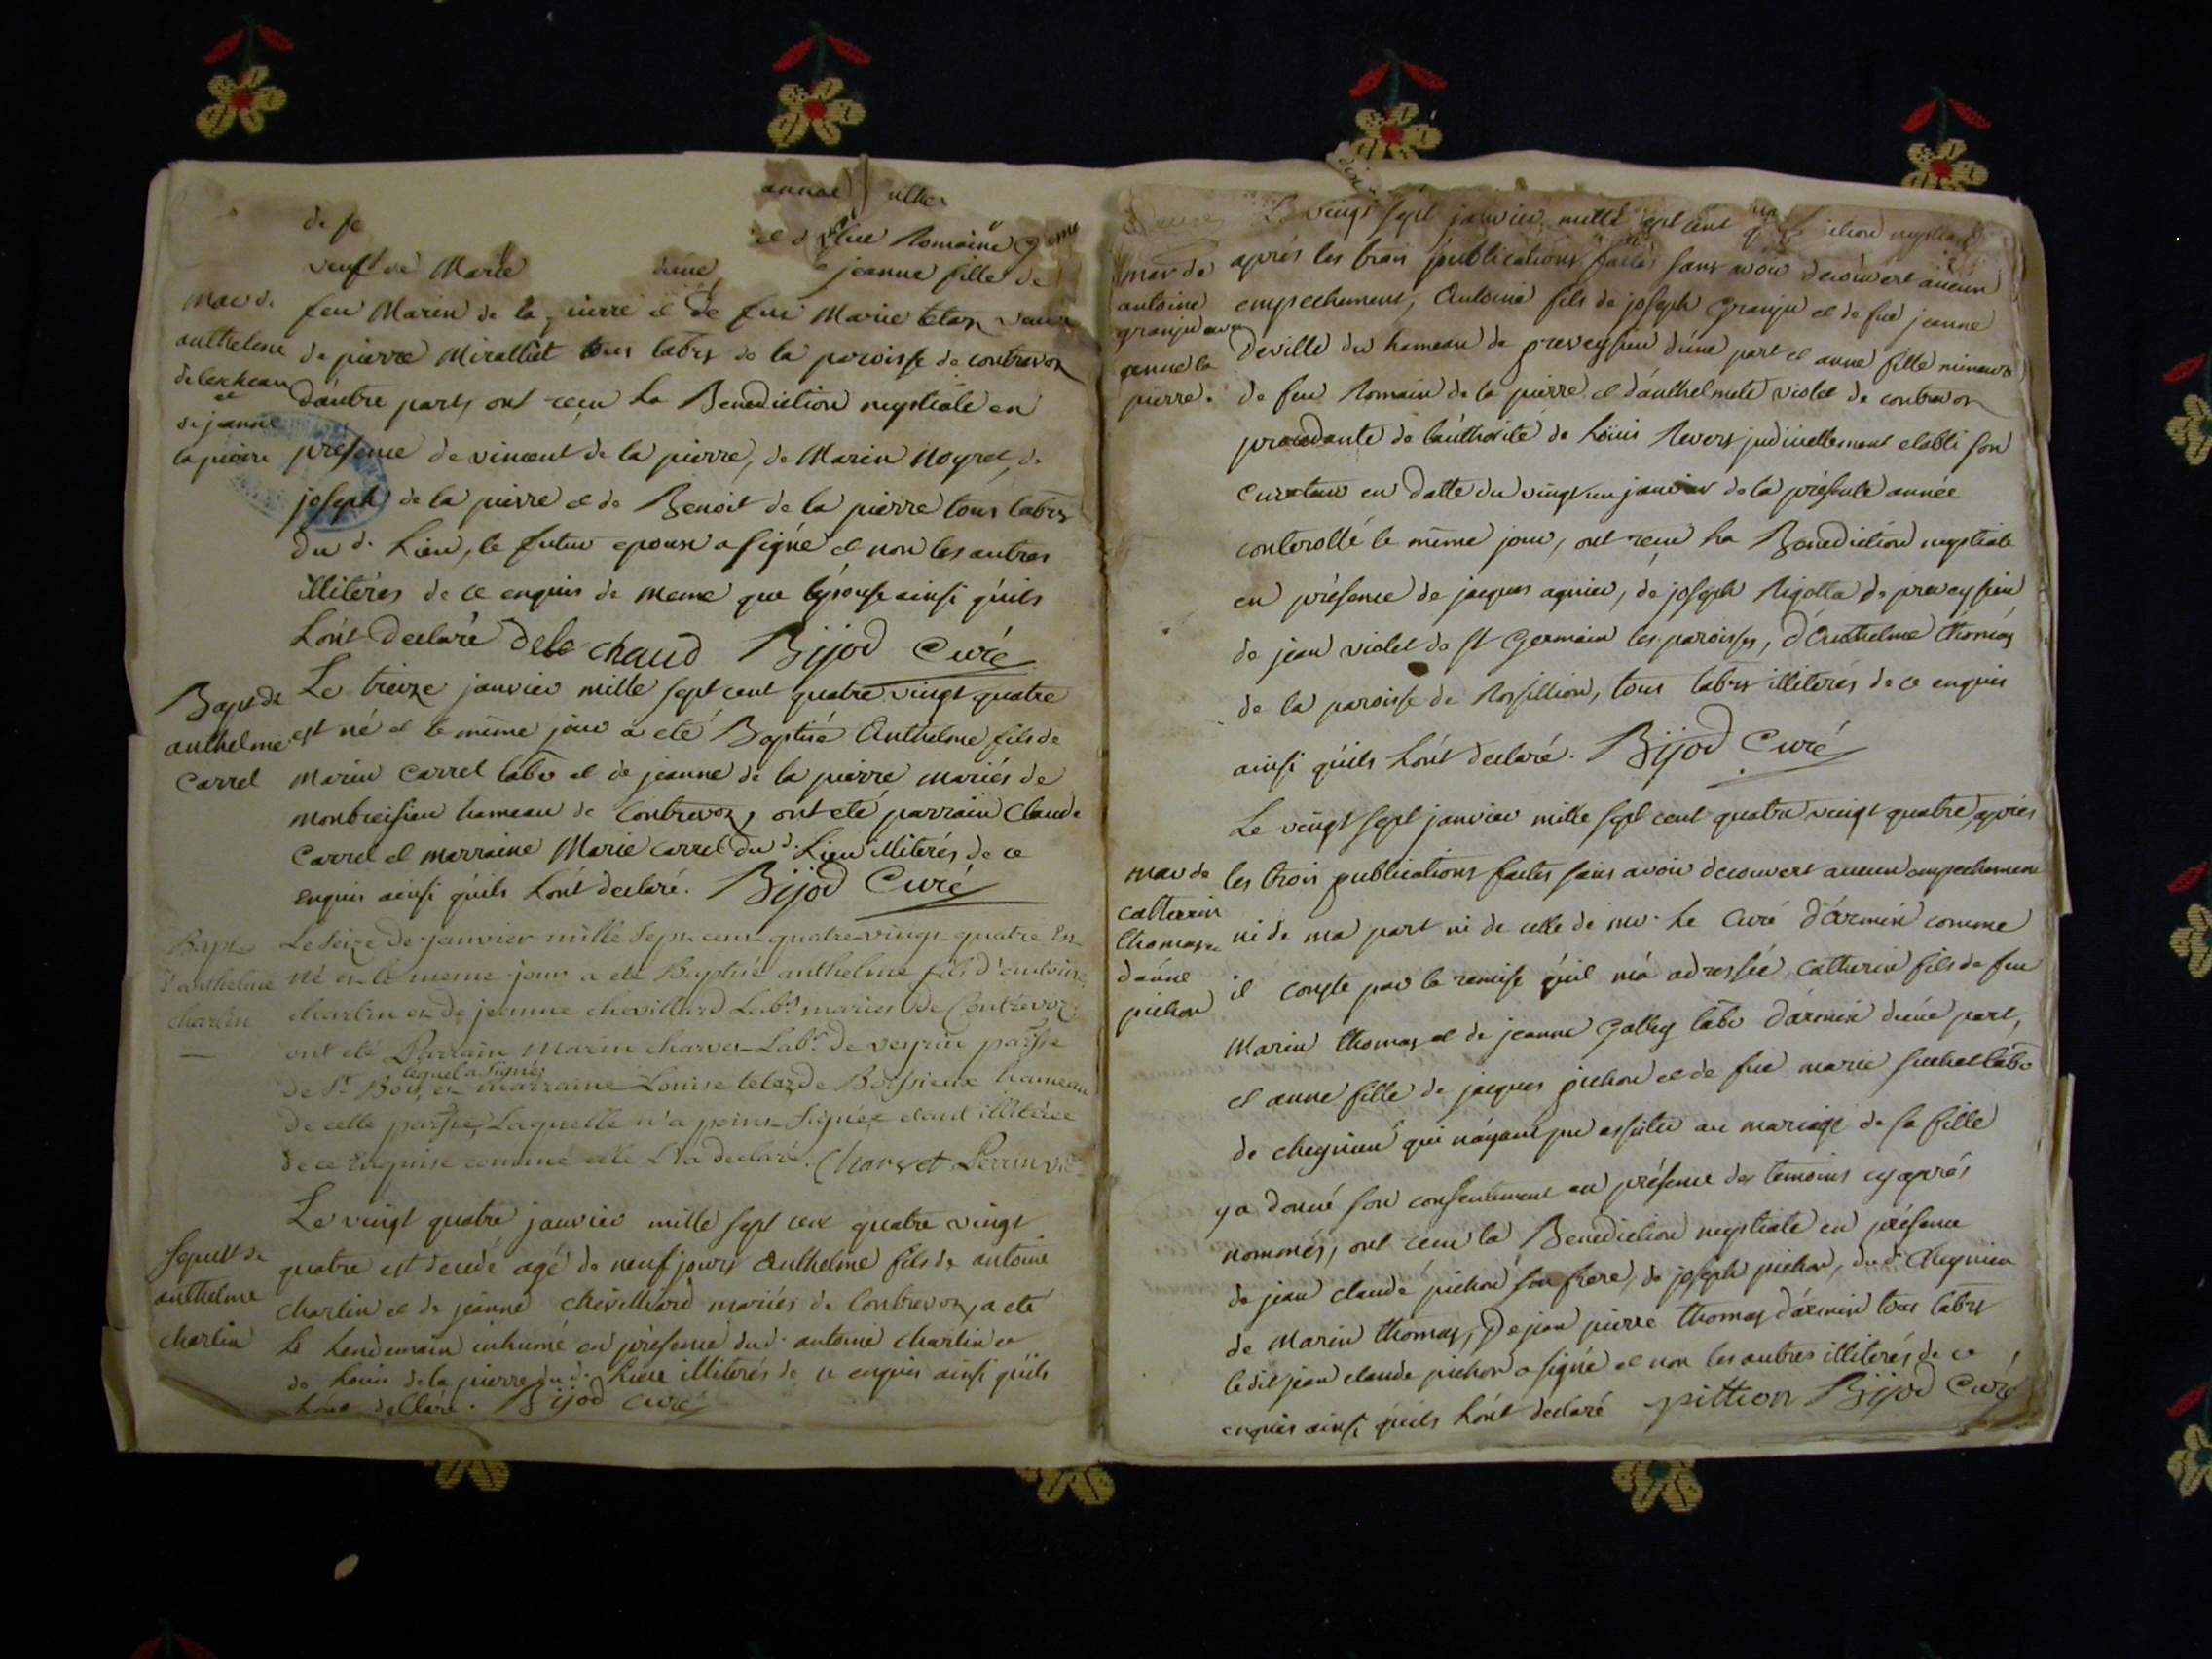 de fe
veuf de Marie dune jeanne fille de
feu Marin de la pierre et de fue Marie tetaz veuve
de pierre Mirallict tous labrs de la paroisse de contrevoz
d'autre part, ont reçu La Benediction nuptiale en
présence de vincent de la pierre, de Marin Moyret, de
joseph de la pierre et de Benoit de la pierre tous labrs
du d. Lieu, le futur epoux a signé et non les autres
illiterés de ce enquis de meme que l'épouse ainsi qu'ils
L'ont declaré Delechaud Bijod Curé
mar. de
anthelme
delecheau
et
de jeanne
lapierre
Le treize janvier mille sept cent quatre vingt quatre
est né et le même jour a eté Baptisé Anthelme fils de
Marin Carrel labr et de jeanne de la pierre mariés de
montbreisieu hameau de Contrevoz, ont eté parrain Claude
Carrel et marraine Marie carrel du d. Lieu illiterés de ce
enquis ainsi qu'ils L'ont declaré. Bijod Curé
Bapt de
anthelme
Carrel
Le Seize de janvier mille Sept cent quatre vingt quatre Est
Né et le meme jour a eté Baptisé anthelme fils d'antoine
charlin et de jeanne chevillard Labrs mariés de Contrevoz;
ont eté Parrain Marin charvet Labr. de veyrin parsse
lequel a signé
de St Bois, et marraine Louise tetaz de Boissieux hameau
de cette parsse, Laquelle n'a point Signée etant illiterée
de ce Enquise comme elle L'a declaré. Charvet Perrin vic
Bapt
d'anthelme
charlin
Le vingt quatre janvier mille sept cent quatre vingt
quatre est decedé agé de neuf jours Anthelme fils de antoine
Charlin et de jeanne Chevilliard mariés de Contrevoz, a eté
Le Lendemain inhumé en présence dud. antoine Charlin et
de Louis de la pierre du d. Lieu illiterés de ce enquis ainsi qu'ils
L'ont declaré. Bijod curé
Sepult de
anthelme
Charlin
Le vingt sept janvier mille sept cent
aprés les trois publications faites sans avoir decouvert aucun
empechement, Antoine fils de joseph Granju et de fue jeanne
Deville du hameau de preveyssieu d'une part et anne fille mineure
de feu Romain de la pierre et d'anthelmete violet de contrevoz
procedante de l'authorité de Loüis Revers judiciellement etabli son
curateur en datte du vingt un janvier de la présente année
conterollé le même jour, ont reçu La Benediction nuptiale
en présence de jacques agnier, de joseph Rigotta de preveyssieu
de jean violet de St Germain les paroisses, d'Anthelme thomas
de la paroisse de Rossillion, tous labrs illiterés de ce enquis
ainsi qu'ils L'ont declaré. Bijod Curé
mar de
antoine
granju avec
anne la
pierre.
Le vingt sept janvier mille sept cent quatre vingt quatre, aprés
les trois publications faites sans avoir decouvert aucun empechement
ni de ma part ni de celle de mr. Le Curé d'armix comme
il conste par la remise qu'il m'a adressée, Catherin fils de feu
Marin thomas et de jeanne Gallay labr d'armix d'une part,
et anne fille de jacques pichon et de fue marie suchet labr
de cheynieu qui n'ayant pu assister au mariage de sa fille
y a donné son consentement en présence des temoins cy aprés
nommés, ont reçu la Benediction nuptiale en présence
de jean claude pichon son frere, de joseph pichon, du d. Cheynieu
de Marin thomas, de jean pierre thomas d'armix tous labrs
ledit jean claude pichon a signé et non les autres illiterés de ce
enquis ainsi qu'ils L'ont declaré pittion Bijod Curé
mar de
catherin
thomas et
d'anne
pichon